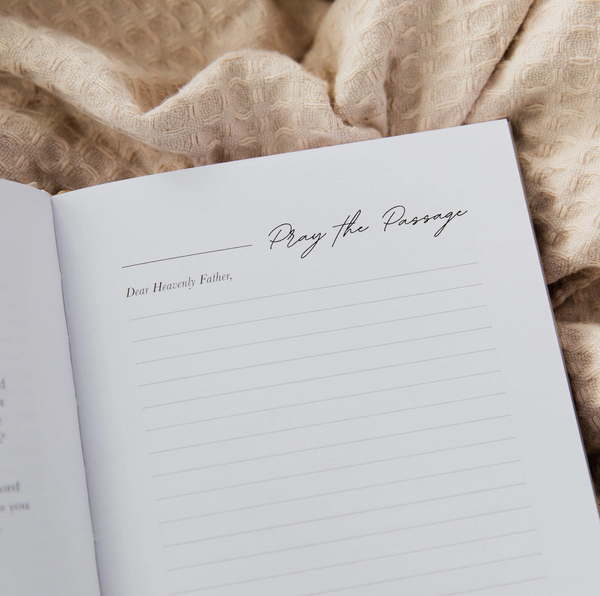 Pray the Passage
Dear Heavenly Father,
you